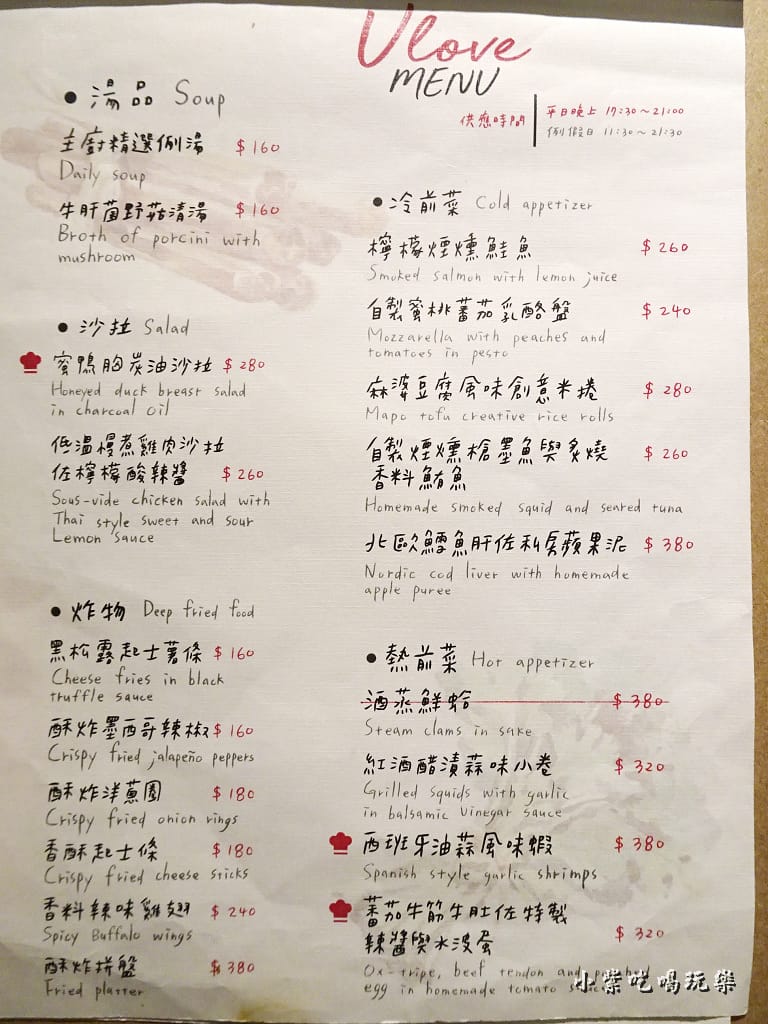 Vlove
MENU
供應時間
平日晚上 17:30~21:00
例假日 11:30~21:30
● 湯品 Soup
主廚精選例湯 $160
Daily soup
牛肝菌野菇清湯 $160
Broth of porcini with
mushroom
● 沙拉 Salad
蜜鴨胸炭油沙拉 $280
Honeyed duck breast salad
in charcoal oil
低溫慢煮雞肉沙拉
佐檸檬酸辣醬 $260
Sous-vide chicken salad with
Thai style sweet and sour
Lemon sauce
● 炸物 Deep fried food
黑松露起士薯條 $160
Cheese fries in black
truffle sauce
酥炸墨西哥辣椒 $160
Crispy fried jalapeño peppers
酥炸洋蔥圈 $180
Crispy fried onion rings
香酥起士條 $180
Crispy fried cheese sticks
香料辣味雞翅 $240
Spicy Buffalo wings
酥炸拼盤 $380
Fried platter
● 冷前菜 Cold appetizer
檸檬煙燻鮭魚 $260
Smoked salmon with lemon juice
自製蜜桃蕃茄乳酪盤 $240
Mozzarella with peaches and
tomatoes in pesto
麻婆豆腐風味創意米捲 $280
Mapo tofu creative rice rolls
自製煙燻槍墨魚與炙燒 $260
香料鮪魚
Homemade smoked squid and seared tuna
北歐鱈魚肝佐私房蘋果泥 $380
Nordic cod liver with homemade
apple puree
● 熱前菜 Hot appetizer
酒蒸鮮蛤 $380
Steam clams in sake
紅酒醋漬蒜味小卷 $320
Grilled squids with garlic
in balsamic Vinegar sauce
西班牙油蒜風味蝦 $380
Spanish style garlic shrimps
蕃茄牛筋牛肚佐特製
辣醬與水波蛋 $320
Ox-tripe, beef tendon and poached
egg in homemade tomato sauce
小紫吃喝玩樂